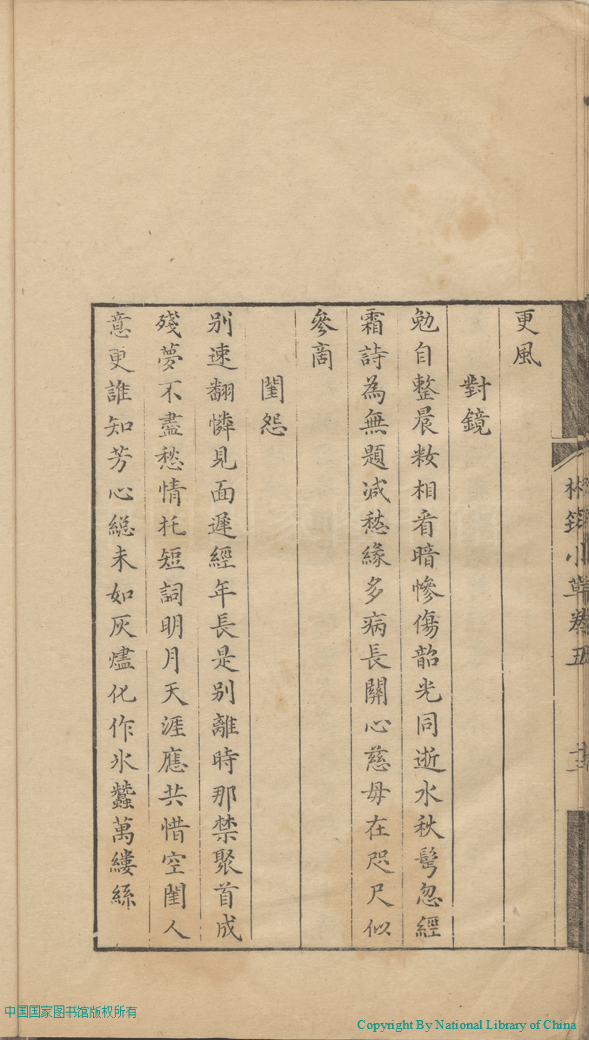 小草卷五
更風
對鏡
勉自整晨粧相看暗慘傷韶光同逝水秋髩忽經
霜詩為無題減愁緣多病長關心慈母在咫尺似
參商
閨怨
別速翻憐見面遲經年長是別離時那禁聚首成
殘夢不盡愁情托短詞明月天涯應共惜空閨人
意更誰知芳心縂未如灰燼化作氷蠶萬縷絲
中国国家图书馆版权所有
Copyright By National Library of China